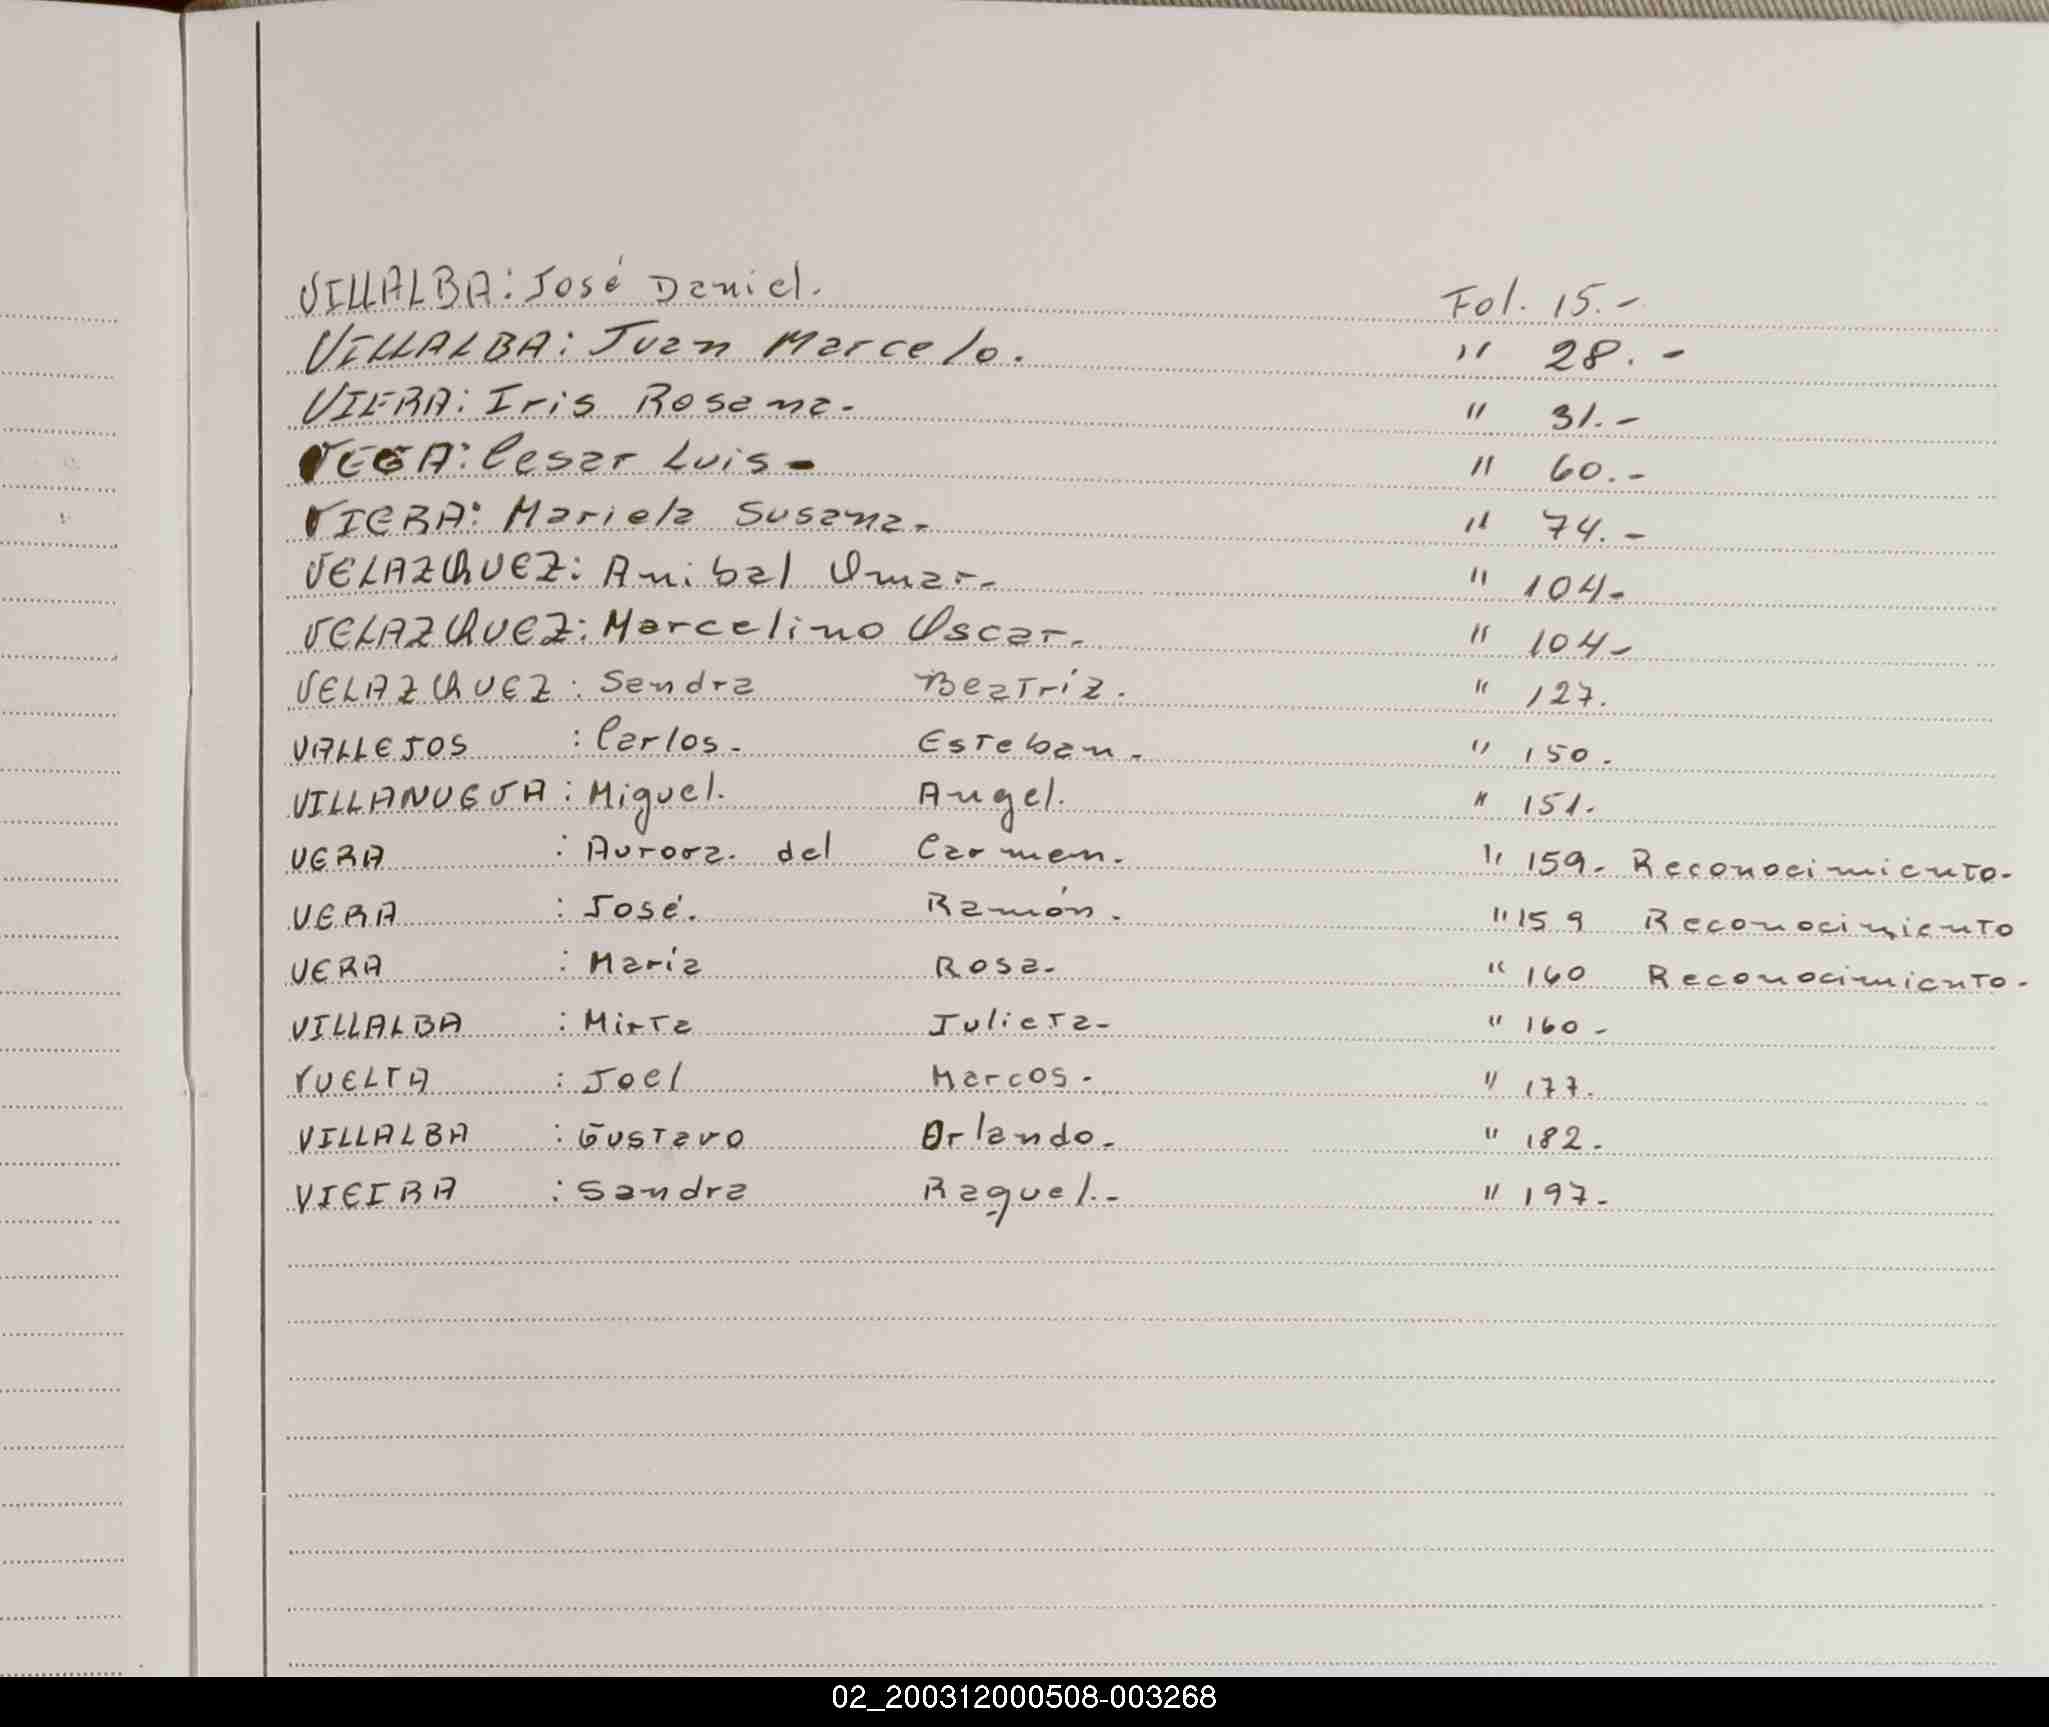 VILLALBA: José Daniel. Fol. 15.-
VILLALBA: Juan Marcelo. " 28.-
VIERA: Iris Rosana. " 31.-
VEGA: Cesar Luis- " 60.-
VIERA: Mariela Susana. " 74.-
VELAZQUEZ: Anibal Omar. " 104-
VELAZQUEZ: Marcelino Oscar. " 104-
VELAZQUEZ: Sandra Beatriz. " 127.
VALLEJOS : Carlos. Esteban. " 150.
VILLANUEVA : Miguel. Angel. " 151.
VERA : Aurora. del Carmen. " 159. Reconocimiento.
VERA : José. Ramón. " 159 Reconocimiento
VERA : María Rosa. " 160 Reconocimiento.
VILLALBA : Mirta Julieta- " 160-
VUELTA : Joel Marcos. " 177.
VILLALBA : Gustavo Orlando. " 182.
VIEIRA : Sandra Raquel.- " 197-
02_200312000508-003268